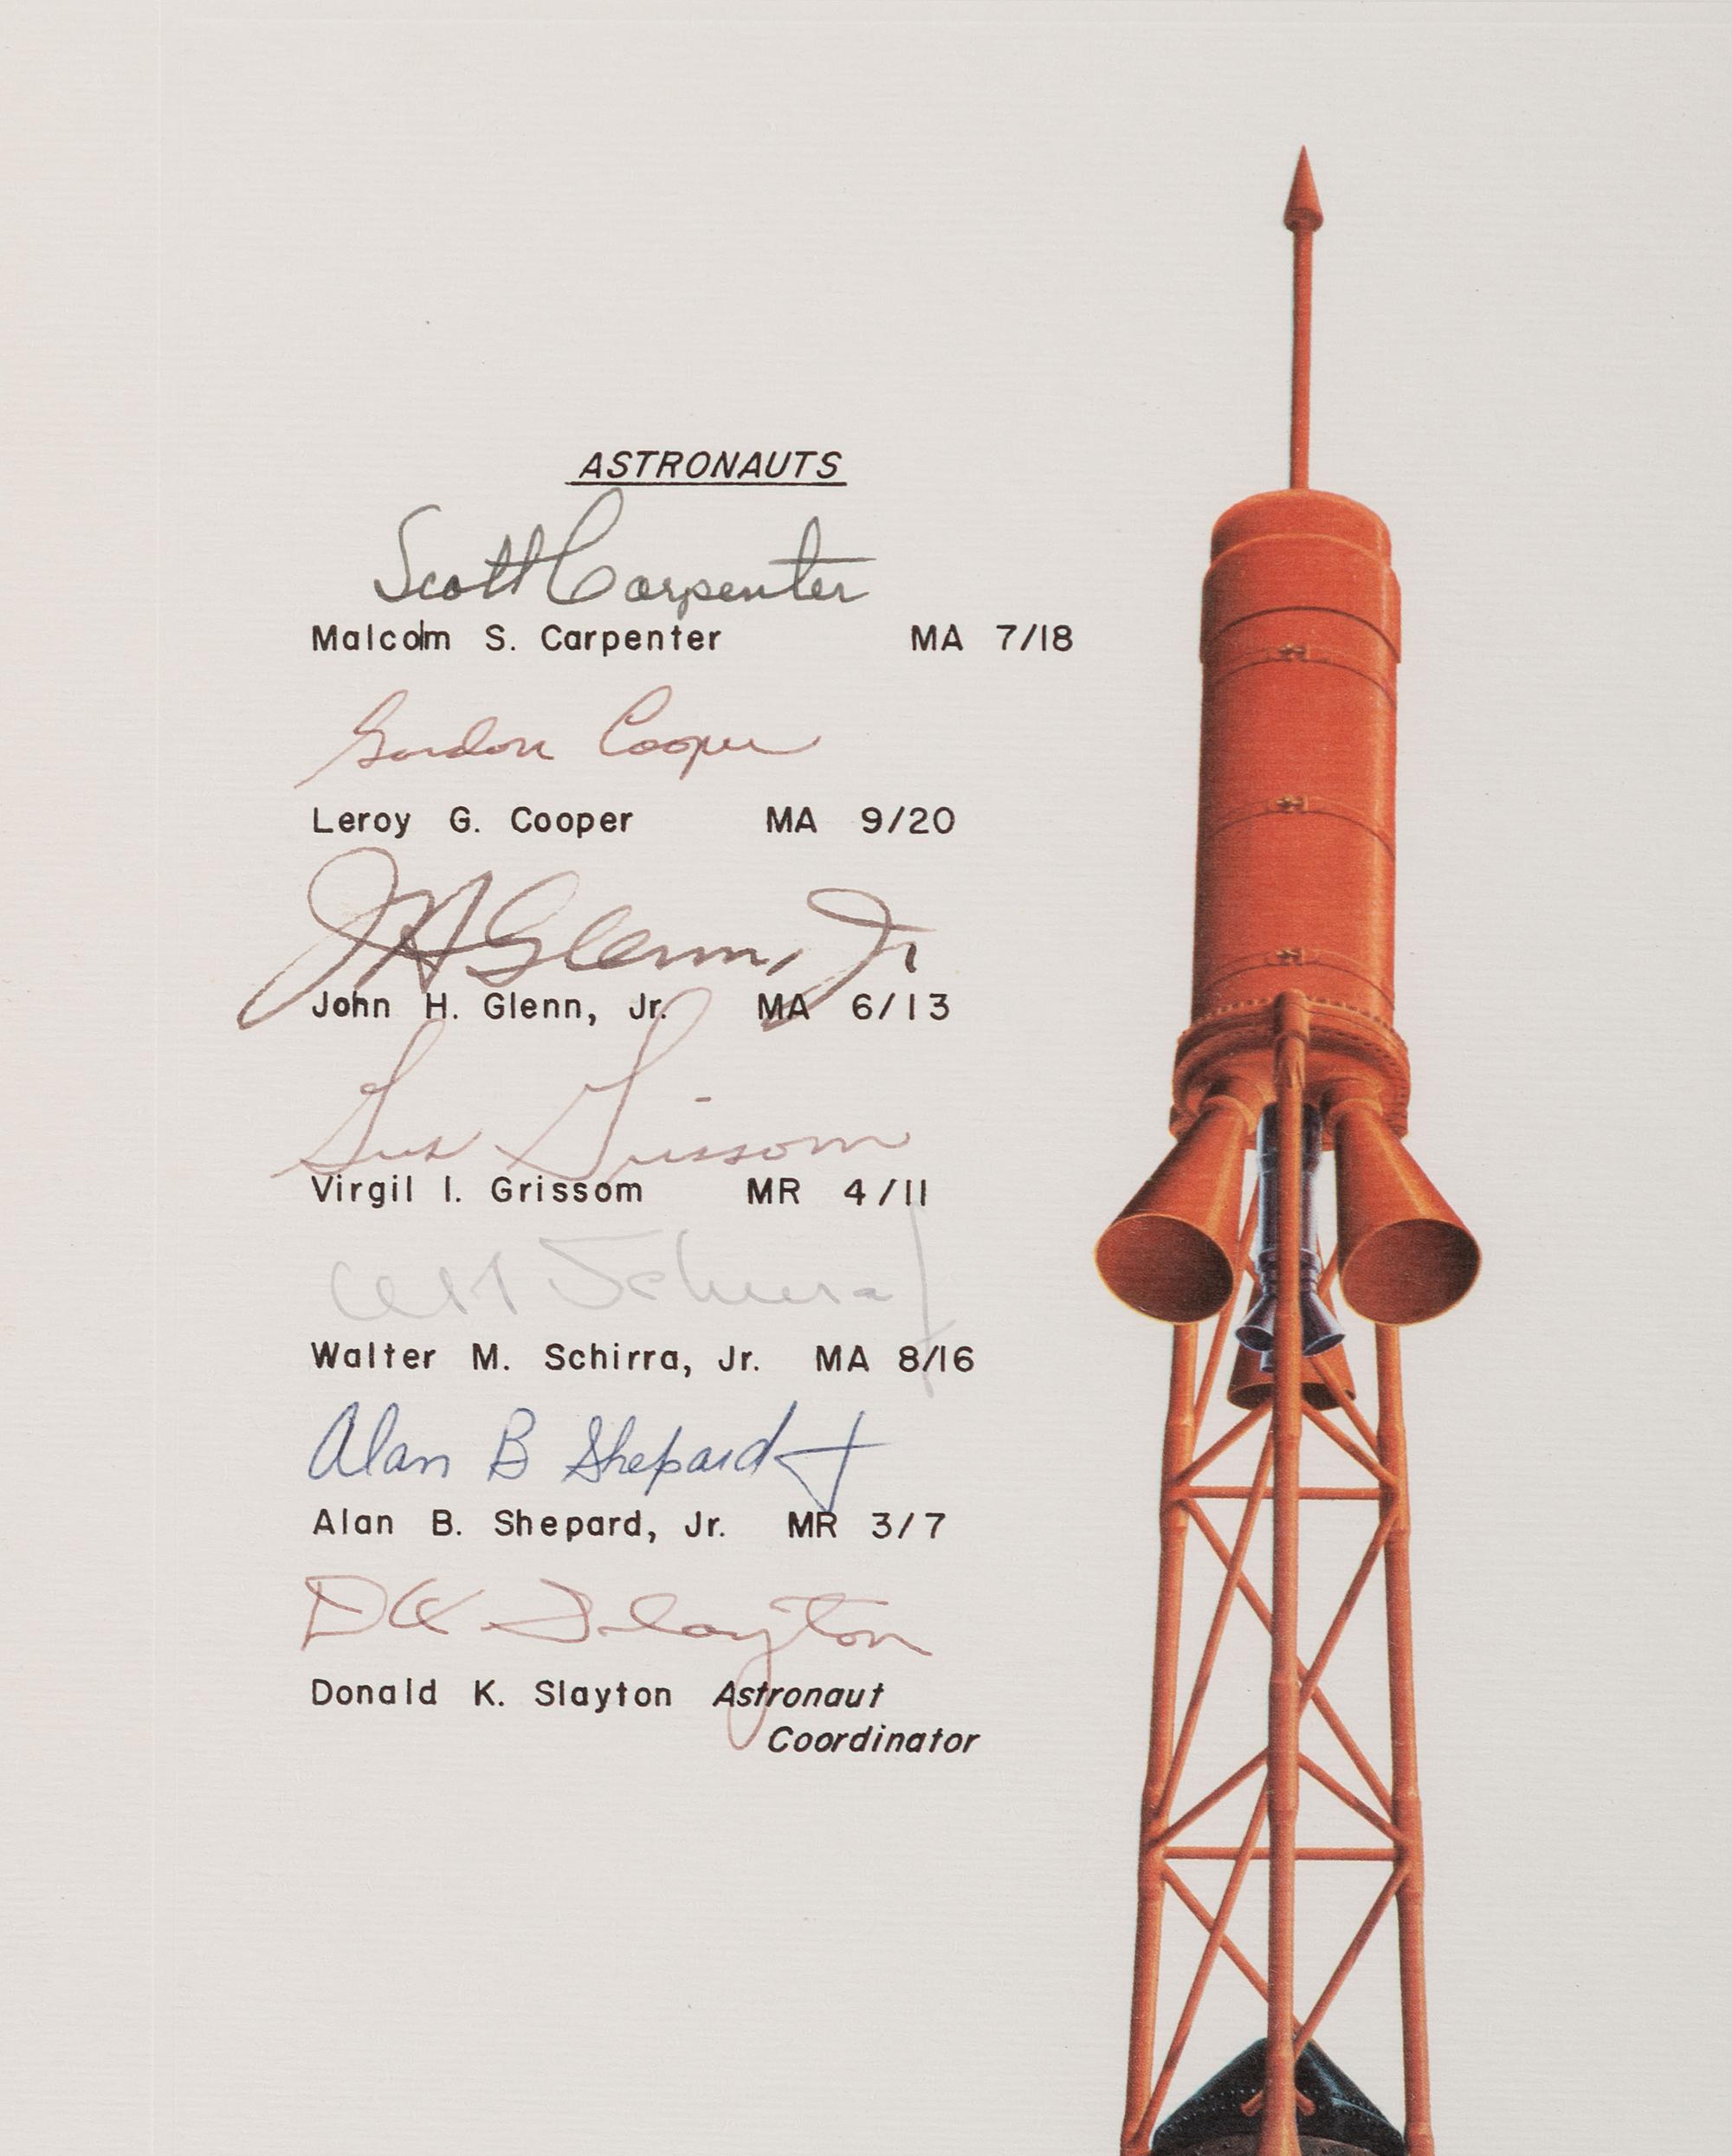 ASTRONAUTS
Scott Carpenter
Malcolm S. Carpenter MA 7/18
Gordon Cooper
Leroy G. Cooper MA 9/20
JH Glenn, Jr
John H. Glenn, Jr. MA 6/13
Gus Grissom
Virgil I. Grissom MR 4/11
Schirra
Walter M. Schirra, Jr. MA 8/16
Alan B Shepard Jr
Alan B. Shepard, Jr. MR 3/7
DK Slayton
Donald K. Slayton Astronaut
Coordinator